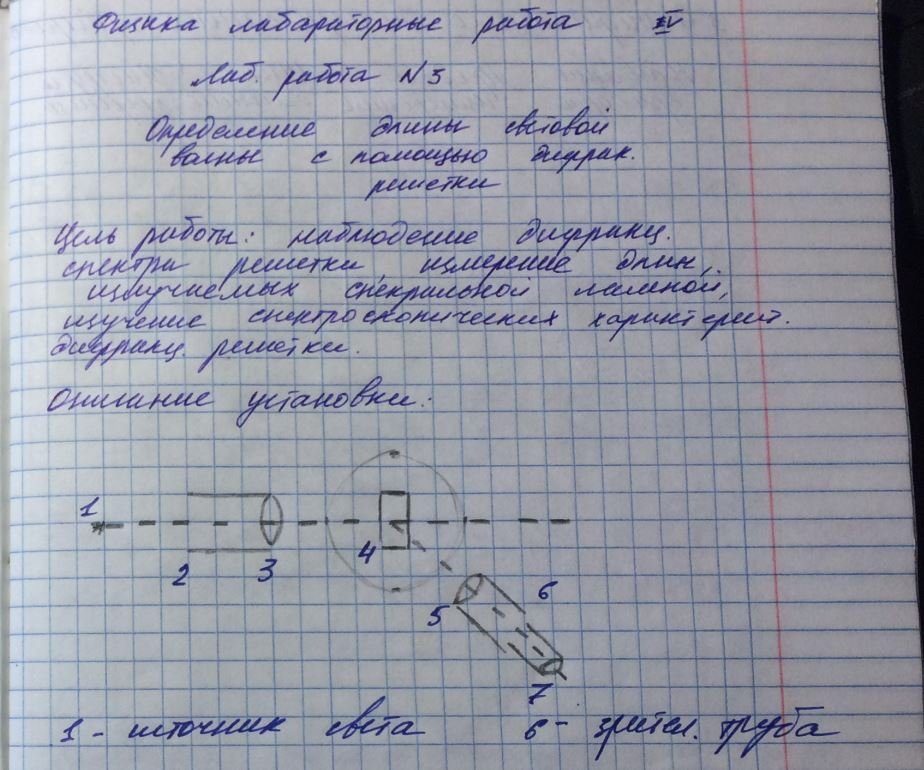 Физика лабараторные работа IV
Лаб. работа N3
Определение длины световой
волны с помощью дифрак.
решетки
Цель работы: наблюдение дифранц.
спектра решетки, измерение длин,
излучаемых спекральной лампой,
изучение спектроскопических характерист.
дифранц. решетки.
Описание установки:
1
2 3 4
5 6
7
1 - источник света 6 - зрител. труба